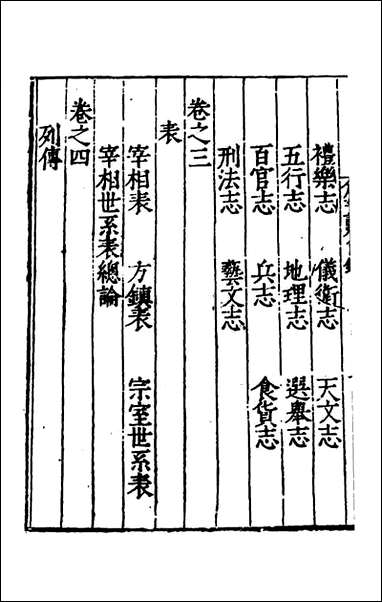 禮樂志　儀衛志　天文志
五行志　地理志　選舉志
百官志　兵志　食貨志
刑法志　藝文志
卷之三
表
宰相表　方鎮表　宗室世系表
宰相世系表總論
卷之四
列傳